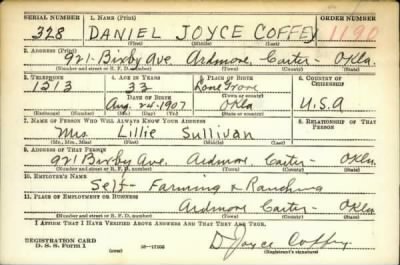 SERIAL NUMBER 1. NAME (Print) ORDER NUMBER
328 DANIEL JOYCE COFFEY 1190
(First) (Middle) (Last)
2. ADDRESS (Print)
921-Bixby Ave. Ardmore, Carter- Okla.
(Number and street or R. F. D. number) (Town) (County) (State)
3. TELEPHONE 4. AGE IN YEARS 5. PLACE OF BIRTH 6. COUNTRY OF CITIZENSHIP
1513 33 Lone Grove
DATE OF BIRTH (Town or county)
Aug. 24-1907 Okla U.S.A
(Mo.) (Day) (Yr.) (State or country)
7. NAME OF PERSON WHO WILL ALWAYS KNOW YOUR ADDRESS 8. RELATIONSHIP OF THAT PERSON
Mrs. Lillie Sullivan
(Mr., Mrs., Miss) (First) (Middle) (Last)
9. ADDRESS OF THAT PERSON
921 Bixby Ave. Ardmore Carter- Okla.
(Number and street or R. F. D. number) (Town) (County) (State)
10. EMPLOYER'S NAME
Self- Farming & Ranching
11. PLACE OF EMPLOYMENT OR BUSINESS
Ardmore Carter- Okla.
(Number and street or R. F. D. number) (Town) (County) (State)
I AFFIRM THAT I HAVE VERIFIED ABOVE ANSWERS AND THAT THEY ARE TRUE.
REGISTRATION CARD
D. S. S. Form 1 (over) D. Joyce Coffey
(Registrant's signature)